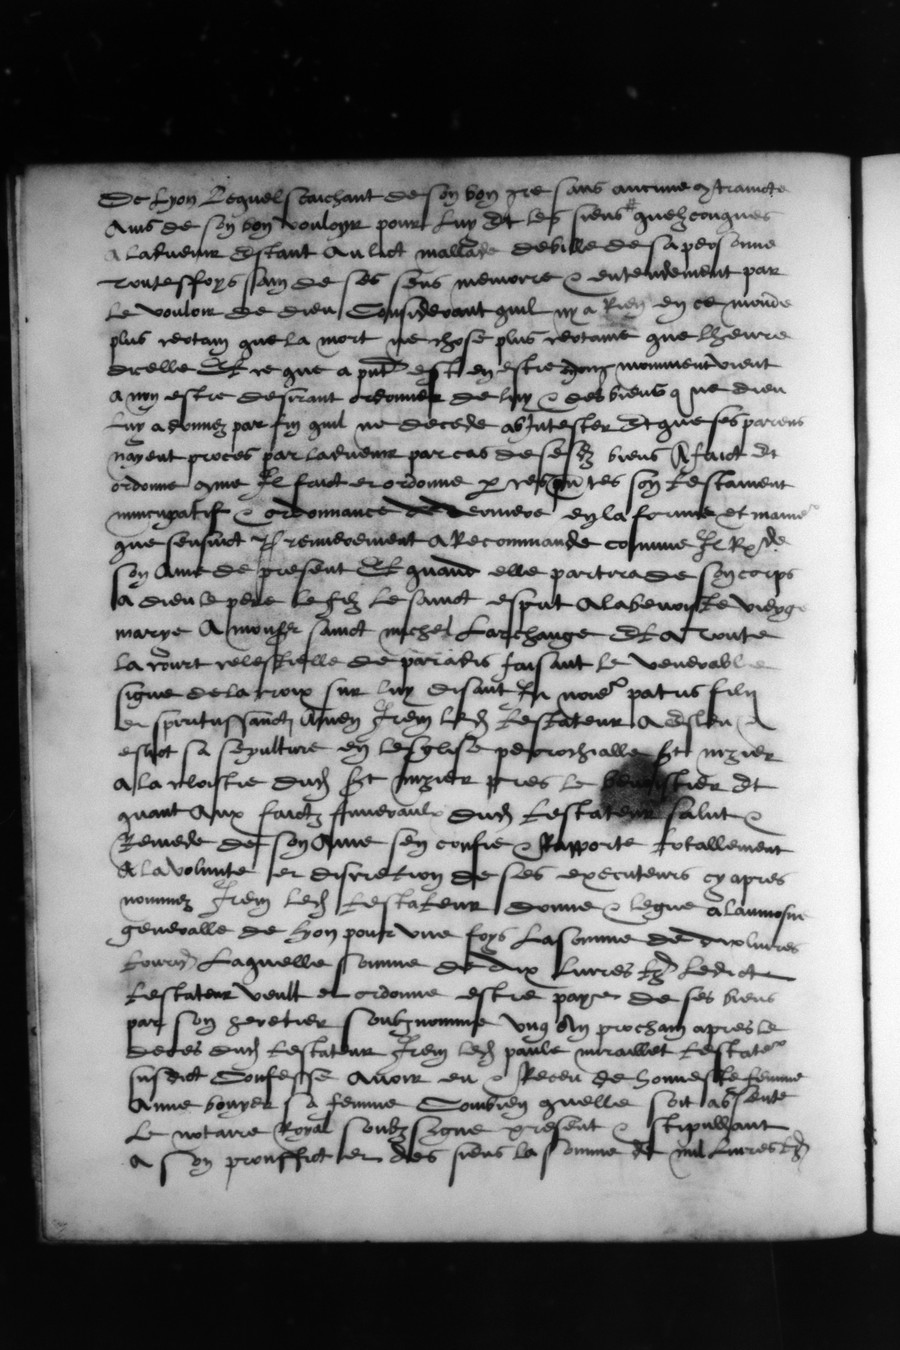 De Lyon Lequel scaichant de son bon gre sans aucune contraincte
Ains de son bon vouloyr pour luy et les siens quelzconques
A ladvenir Estant Au lict mallade debille de sa personne
Toutesfoys sain de ses sens memoire & entendement par
le vouloir de dieu Considerant quil ny a Rien en ce monde
plus certain que la mort ne chose plus certaine que lheure
dicelle Et ce que a pnt est en estre moment vient
A non estre desirant ordonner de luy & des biens que dieu
luy a donnez par fin quil ne decede abIntestet Et que ses parens
nayent proces par ladvenir par cas de sesd biens A faict et
ordonne comme Il faict et ordonne par ces pntes son Testament
nuncupatif & ordonnance de derniere en la forme et maniere
que sensuict Et premierement A Recommande comme Il Rde
son Ame de present Et quand elle partira de son corps
A dieu le pere le filz Le sainct esprit A la benoiste vierge
marye A monsr sainct michel Larchange Et A Toute
la court celestielle de paradis faisant le venerable
signe de la croix sur luy disant In noie patris filii
et spiritus sancti Amen Item led Testateur A esleu &
eslict sa sepulture en lesglise perrochialle St nizier
A la cloistre dud St nizier pres le benoistier Et
quant Aux faictz funeraulx dud Testateur salut &
Remede de son Ame sen confie & Rapporte totallement
A la volunte et discretion de ses executeurs cy apres
nommez Item led Testateur donne & legue a laumosne
generalle de Lyon pour une foys La somme de dix livres
tourn Laquelle somme de dix Livres tz Ledict
Testateur veult et ordonne estre payer de ses biens
par son heretier soubznomme ung An prochain apres le
deces dud Testateur Item led paule mraillet Testater
susdict Confesse Avoir eu & Receu de honneste femme
Anne bouyer sa femme Combien quelle soit absente
Le notaire Royal soubzsigne present & stipullant
A son prouffict et des siens la somme de mil Livres tz